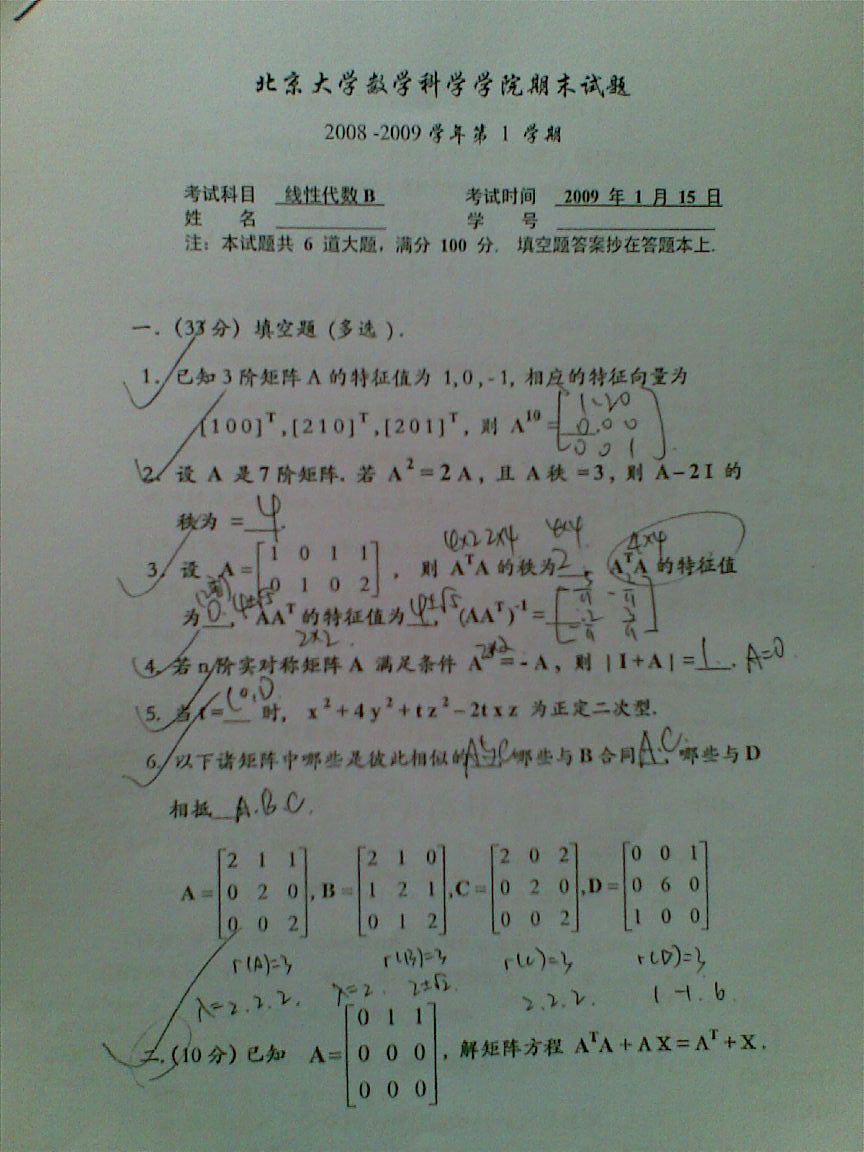 北京大学数学科学学院期末试题
2008 -2009 学年第 1 学期
考试科目 线性代数 B 考试时间 2009 年 1 月 15 日
姓 名 学 号
注：本试题共 6 道大题，满分 100 分. 填空题答案抄在答题本上.
一.（33分）填空题 (多选 ).
1. 已知 3 阶矩阵 A 的特征值为 1,0,-1, 相应的特征向量为
[1 0 0]ᵀ,[2 1 0]ᵀ,[2 0 1]ᵀ, 则 A¹⁰ = [1 -2 0; 0 0 0; 0 0 1].
2. 设 A 是 7 阶矩阵. 若 A²=2A, 且 A 秩 =3, 则 A-2I 的
秩为 = 4.
4×2 2×4 4×4 4×4
3. 设 A=[1 0 1 1; 0 1 0 2], 则 AᵀA 的秩为 2 AᵀA 的特征值
为 0, 4±√5 AAᵀ 的特征值为 4±√5, (AAᵀ)⁻¹ = [5/11 -2/11; -2/11 3/11]
2×2 2×2
4. 若 n 阶实对称矩阵 A 满足条件 A = -A, 则 |I+A| = 1. A=0
5. 当 t= 时, x²+4y²+tz²-2txz 为正定二次型.
6. 以下诸矩阵中哪些是彼此相似的 哪些与 B 合同 A.C. 哪些与 D
相抵 A.B.C.
A=[2 1 1; 0 2 0; 0 0 2], B=[2 1 0; 1 2 1; 0 1 2], C=[2 0 2; 0 2 0; 0 0 2], D=[0 0 1; 0 6 0; 1 0 0]
r(A)=3 r(B)=3 r(C)=3 r(D)=3
λ=2.2.2. λ=2. 2±√2. 2.2.2. 1 -1. 6
二.(10 分) 已知 A=[0 1 1; 0 0 0; 0 0 0], 解矩阵方程 AᵀA+AX=Aᵀ+X.